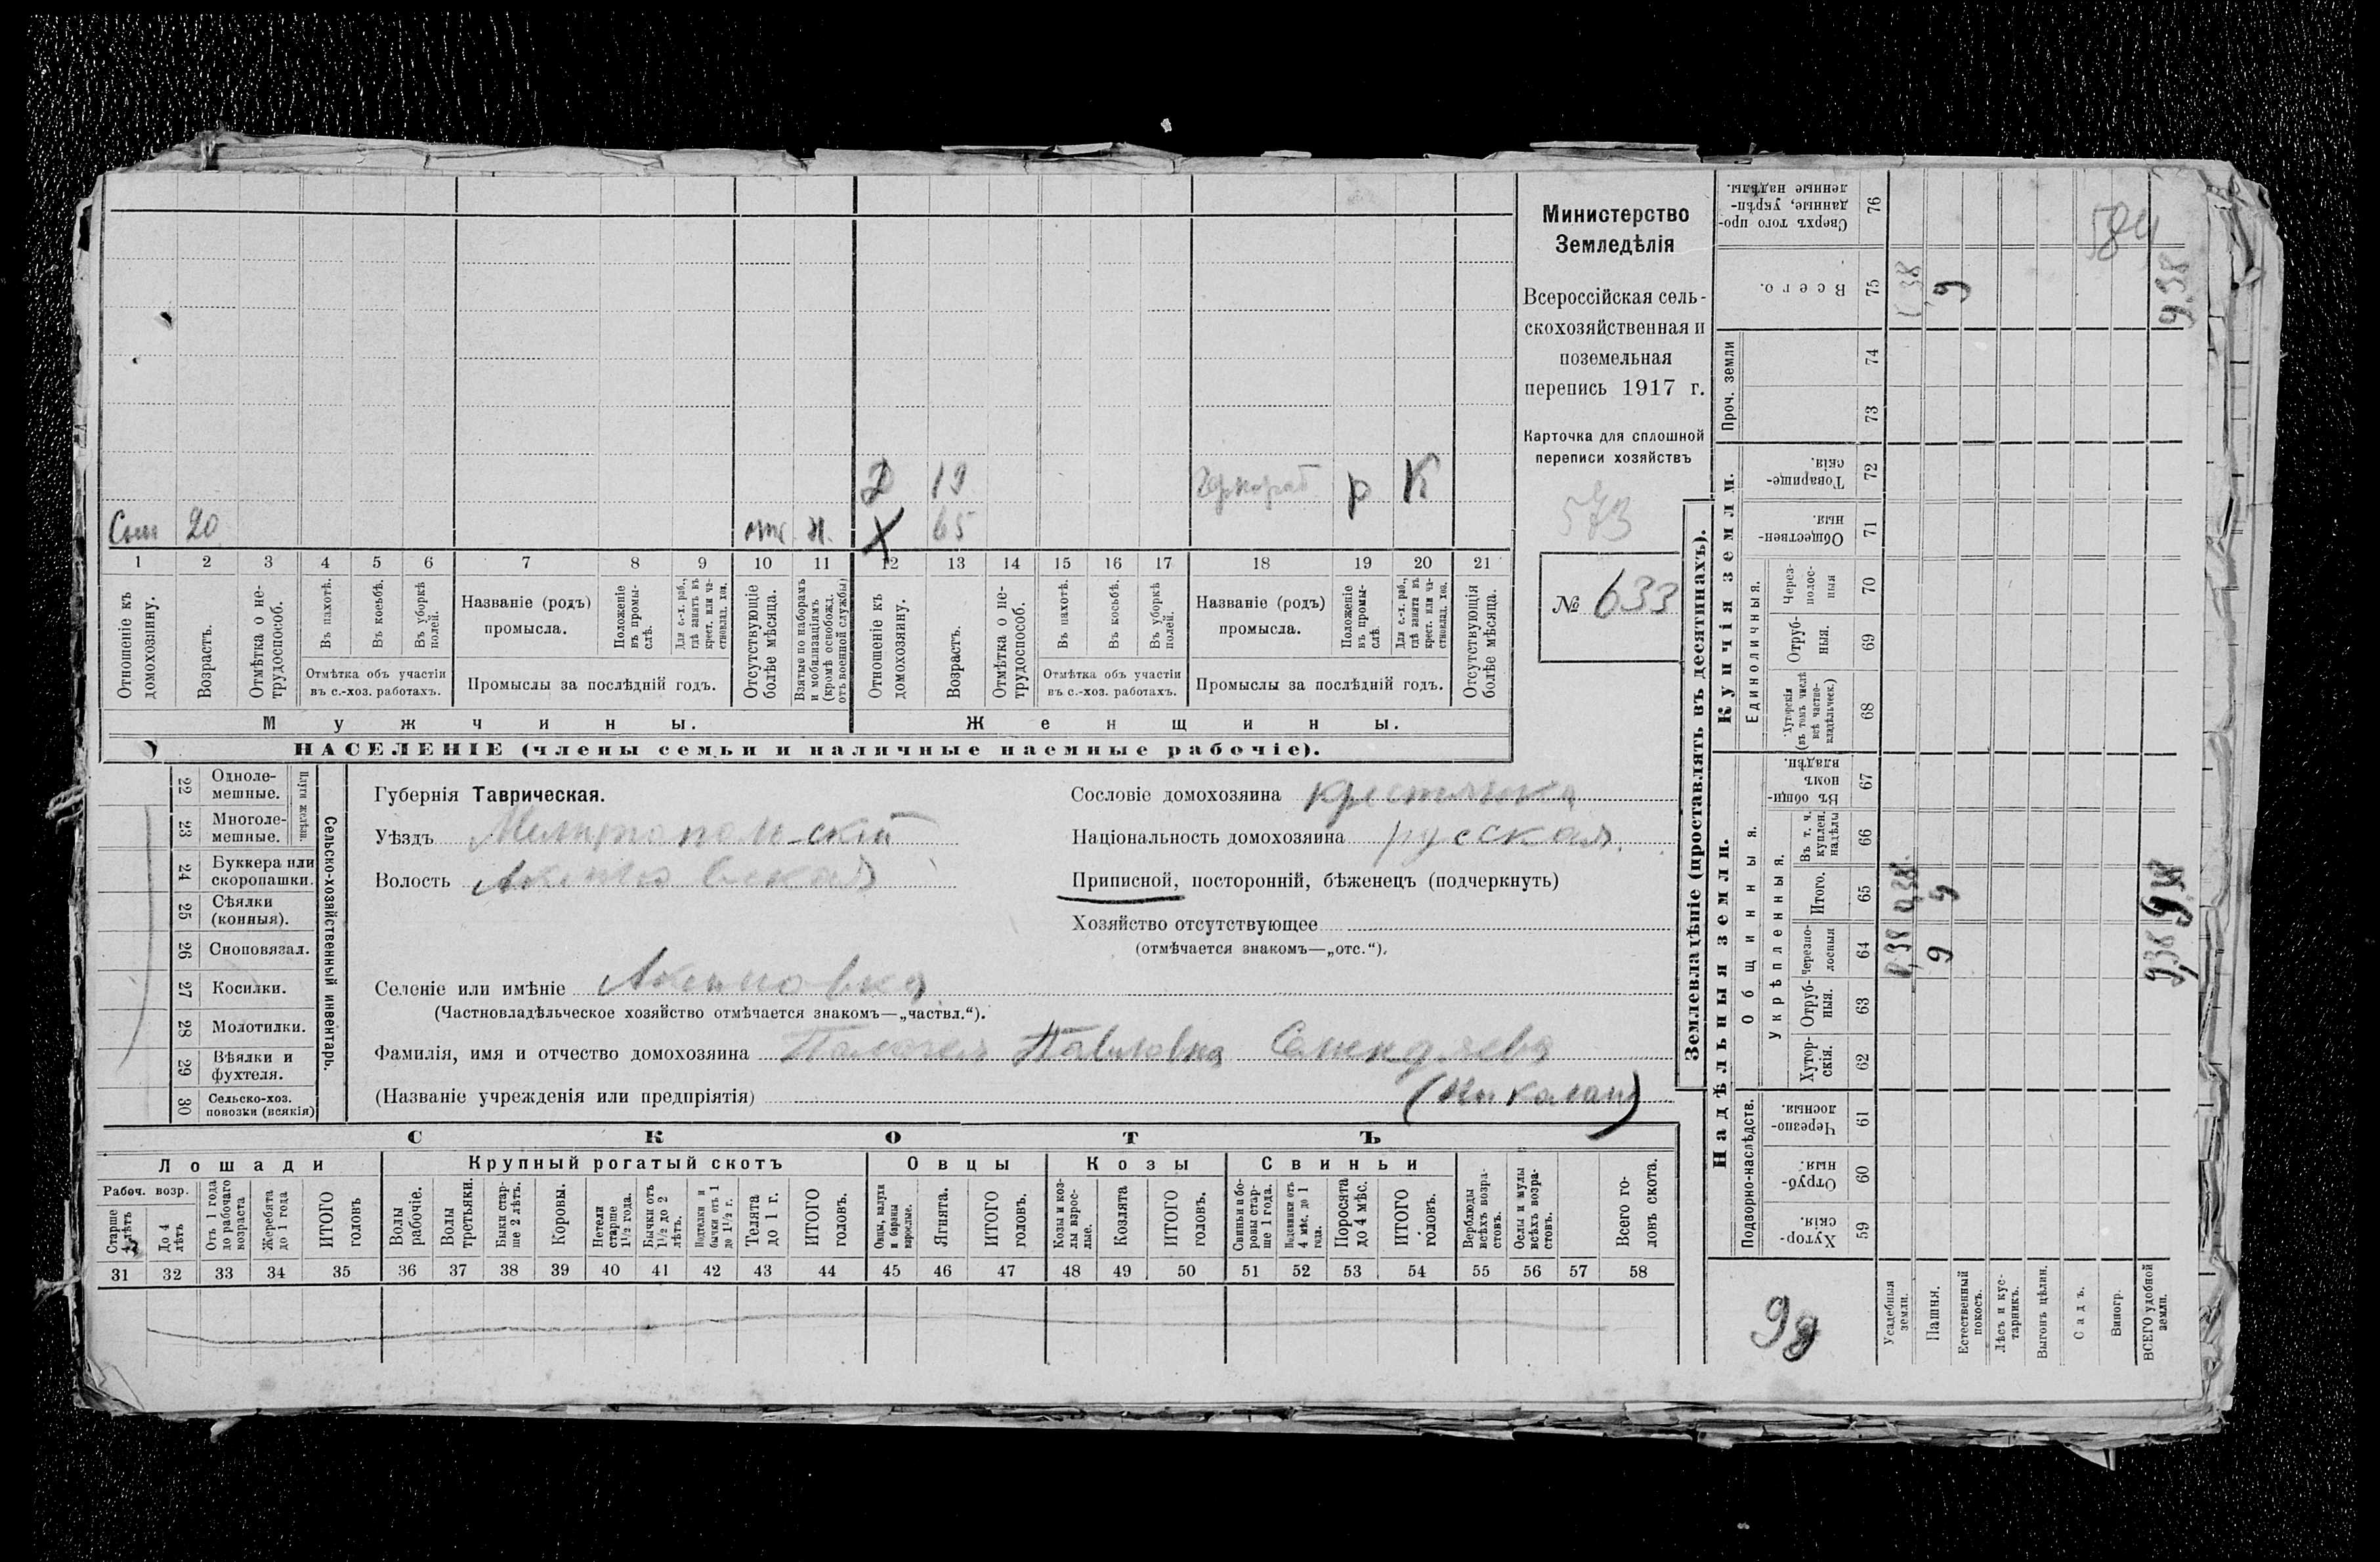 Министерство
Земледѣлія
Всероссійская сель-
скохозяйственная и
поземельная
перепись 1917 г.
Карточка для сплошной
переписи хозяйствъ
573
№ 633
Д 19 р К
Сын 20 отс. н. Х 65
1 2 3 4 5 6 7 8 9 10 11 12 13 14 15 16 17 18 19 20 21
Отношеніе къ домохозяину.
Возрастъ.
Отмѣтка о не-трудоспособ.
Въ пахотѣ.
Въ косьбѣ.
Въ уборкѣ полей.
Отмѣтка объ участіи
въ с.-хоз. работахъ.
Названіе (родъ)
промысла.
Положеніе въ промы-слѣ.
Для с.-х. раб., гдѣ занятъ въ крест. или ча-стновлад. хоз.
Промыслы за послѣдній годъ.
Отсутствующіе болѣе мѣсяца.
Взятые по наборамъ и мобилизаціямъ (кромѣ освобожд. отъ военной службы)
Отношеніе къ домохозяину.
Возрастъ.
Отмѣтка о не-трудоспособ.
Въ пахотѣ.
Въ косьбѣ.
Въ уборкѣ полей.
Отмѣтка объ участіи
въ с.-хоз. работахъ.
Названіе (родъ)
промысла.
Положеніе въ промы-слѣ
Для с.-х. раб., гдѣ занята въ крест. или ча-стновлад. хоз.
Промыслы за послѣдній годъ.
Отсутствующія болѣе мѣсяца.
Мужчины. Женщины.
НАСЕЛЕНІЕ (члены семьи и наличные наемные рабочіе).
Сельско-хозяйственный инвентарь.
Плуги желѣзн.
22 Одноле-мешные.
23 Многоле-мешные.
24 Буккера или скоропашки.
25 Сѣялки (конныя).
26 Сноповязал.
27 Косилки.
28 Молотилки.
29 Вѣялки и фухтеля.
30 Сельско-хоз. повозки (всякія)
Губернія Таврическая.
Уѣздъ Мелитопольскій
Волость Акимовская
Сословіе домохозяина крестьянка
Національность домохозяина русская.
Приписной, посторонній, бѣженецъ (подчеркнуть)
Хозяйство отсутствующее
(отмѣчается знакомъ—„отс.“).
Селеніе или имѣніе Акимовка
(Частновладѣльческое хозяйство отмѣчается знакомъ—„частвл.“).
Фамилія, имя и отчество домохозяина Пелагея Павловна
(Названіе учрежденія или предпріятія)
СКОТЪ
Лошади Крупный рогатый скотъ Овцы Козы Свиньи
Рабоч. возр.
Старше 4 лѣтъ
До 4 лѣтъ
Отъ 1 года до рабочаго возраста
Жеребята до 1 года
ИТОГО головъ
Волы рабочіе.
Волы третьяки.
Быки стар-ше 2 лѣтъ.
Коровы.
Нетели старше 1½ года.
Бычки отъ 1½ до 2 лѣтъ.
Подтелки и бычки отъ 1 до 1½ г.
Телята до 1 г.
ИТОГО головъ.
Овцы, валухи и бараны взрослые.
Ягнята.
ИТОГО головъ.
Козы и коз-лы взрос-лые.
Козлята
ИТОГО головъ.
Свиньи и бо-ровы стар-ше 1 года.
Подсвинки отъ 4 мѣс. до 1 года.
Поросята до 4 мѣс.
ИТОГО головъ.
Верблюды всѣхъ возра-стовъ.
Ослы и мулы всѣхъ возра-стовъ.
Всего го-ловъ скота.
31 32 33 34 35 36 37 38 39 40 41 42 43 44 45 46 47 48 49 50 51 52 53 54 55 56 57 58
Землевладѣніе (проставлять въ десятинахъ).
Надѣльныя земли. Купчія земли. Проч. земли
Подворно-наслѣдств.
Общинныя.
Укрѣпленныя.
Единоличныя.
59 Хутор-скія.
60 Отруб-ныя.
61 Черезпо-лосныя
62 Хутор-скія.
63 Отруб-ныя.
64 Черезпо-лосныя
65 Итого.
66 Въ т. ч. куплен. надѣлы
67 Въ общин-номъ владѣн.
68 Хуторскія (въ томъ числѣ всѣ частно-владѣльческ.)
69 Отруб-ныя.
70 Через-полос-ныя
71 Обществен-ныя.
72 Товарище-скія.
73
74
75 Всего.
76 Сверхъ того про-данные, укрѣп-ленные надѣлы.
Усадебныя земли. 0,38 0,38
Пашня. 9 9 9
Естественный покосъ.
Лѣсъ и кус-тарникъ.
Выгонъ цѣлин.
Садъ.
Виногр.
ВСЕГО удобной земли. 9,38 9,38 9,38
584